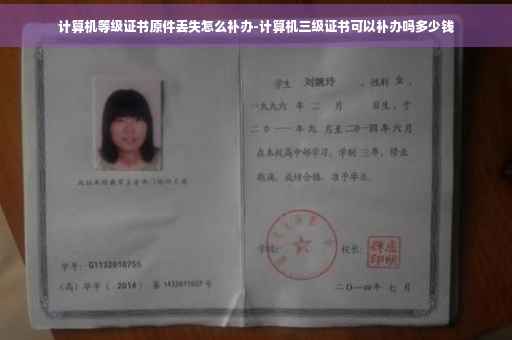 计算机等级证书原件丢失怎么补办-计算机三级证书可以补办吗多少钱
学生 刘婉玲 ，性别 女 ，
一九九六 年 二 月 日生，于
二0一一年九 月至二0一四年六月
在本校高中部学习，学制 三年，修业
期满，成绩合格，准予毕业。
学号：G1132010755
（高）毕字（ 2014 ）第 1432011027 号
学校：
校长：
二〇一四年 七 月